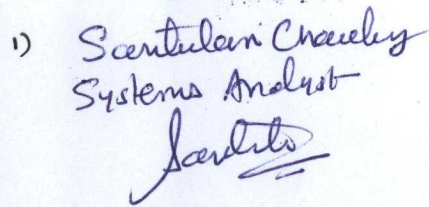 1) Santulan Chaubey
Systems Analyst